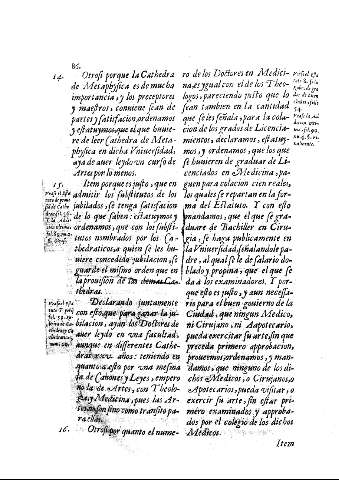 86.
14.
Otrosi porque la Cathedra
de Metaphysica es de mucha
importancia, y los preceptores
y maestros, conviene sean de
partes y satisfacion, ordenamos
y estatuymos, que el que huuie-
re de leer Cathedra de Meta-
physica en dicha Vniuersidad,
aya de auer leydo un curso de
Artes por lo menos.
15.
Item porque es justo, que en
admitir los substitutos de los
jubilados, se tenga satisfacion
de lo que saben: estatuymos y
ordenamos, que con los substi-
tutos nombrados por los Ca-
thedraticos, a quien se les hu-
uiere concedido jubilacion, se
guarde el mismo orden que en
la prouision de
thedras.
Declarando juntamente
con esto, que para ganar la ju-
bilacion, ayan los Doctores de
auer leydo en una facultad,
aunque en differentes Cathe-
dras años: teniendo en
quanto a esto por una mesma
la de Canones y Leyes, empero
no la de Artes, con Theolo-
gia y Medicina, pues las Ar-
tes no son sino como transito pa-
ra ellas.
16.
Otrosi por quanto el nume-
ro de los Doctores en Medici-
na es ygual con el de los Theo-
logos, pareciendo justo que lo
sean tambien en la cantidad
que se les señala, para la cola-
cion de los grados de Licencia-
mientos, declaramos, estatuy-
mos, y ordenamos, que los que
se huuieren de graduar de Li-
cenciados en Medicina, pa-
guen para colacion cien reales,
los quales se repartan en la for-
ma del Estatuto. Y con esto
mandamos, que el que se gra-
duare de Bachiller en Ciru-
gia, se haga publicamente en
la Vniuersidad, señalandole pa-
dre, al qual se le de salario do-
blado y propina, que el que se
da a los examinadores. Y por-
que esto es justo, y aun necessa-
rio para el buen gouierno de la
Ciudad, que ningun Medico,
ni Cirujano, ni Apotecario,
pueda exercitar su arte, sin que
preceda primero approbacion,
prouemos, ordenamos, y man-
damos, que ninguno de los di-
chos Medicos, o Cirujanos, o
Apotecarios, pueda visitar, o
exercer su arte, sin estar pri-
mero examinados y approba-
dos por el colegio de los dichos
Medicos.
Item